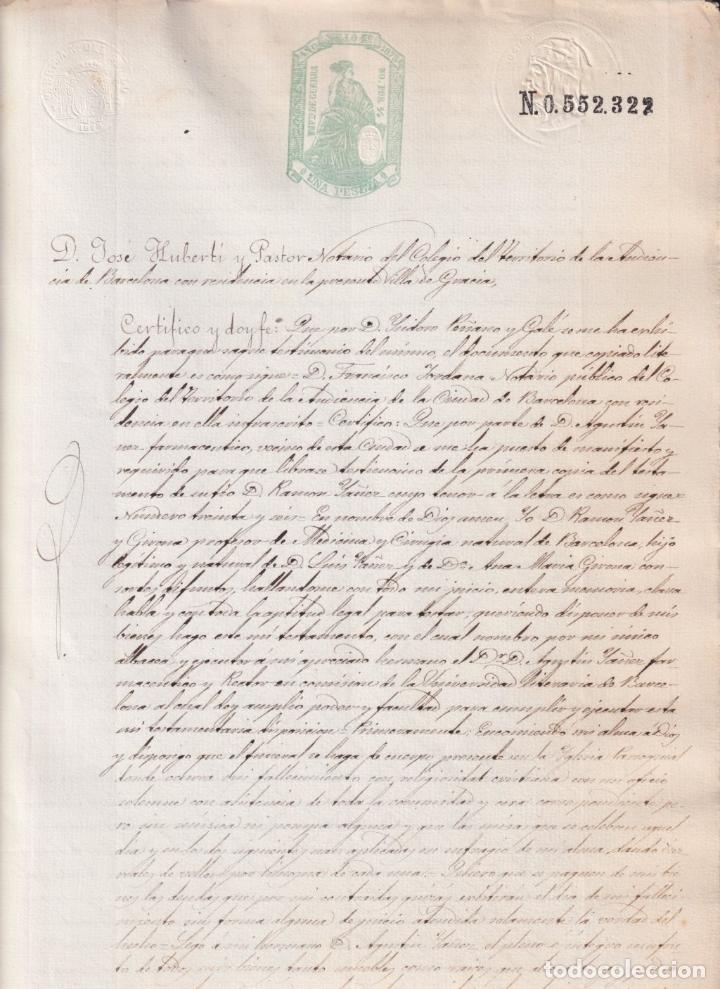 N.0.552.322
UNA PESETA
D. José Huberti y Pastor Notario del Colegio del territorio de la Audien-
cia de Barcelona con residencia en la presente Villa de Gracia,
Certifico y doy fe: Que por D. Ysidoro y Galé se me ha exhi-
bido para que saque testimonio del mismo, el documento que copiado lite-
ralmente es como sigue= D. Francisco Jordana Notario público del Co-
legio del Territorio de la Audiencia de la Ciudad de Barcelona con resi-
dencia en ella infrascrito= Certifico: Que por parte de D. Agustin Ya-
ñez farmaceutico, vecino de esta Ciudad se me ha puesto de manifiesto y
requirido para que librase testimonio de la primera copia del testa-
mento de D. Ramon Yáñez cuyo tenor á la letra es como sigue=
Número treinta y seis= En nombre de Dios amen, Yo D. Ramon Yañez
y Girona profesor de Medicina y Cirugia natural de Barcelona, hijo
legitimo y natural de D. Luis Yañez y de Dª Ana Maria Girona, con-
sortes difuntos, hallandome con todo mi juicio, entera memoria, clara
habla y con toda la aptitud legal para testar; queriendo disponer de mis
bienes hago este mi testamento, con el cual nombro por mi único
albacea y ejecutor á mi apreciado hermano el Dr D. Agustin Yañez far-
maceutico y Rector en comision de la Universidad literaria de Barce-
lona al cual doy amplio poder y facultad para cumplir y ejecutar esta
mi testamentaria disposicion= Primeramente: Encomiendo mi alma á Dios
y dispongo que el funeral se haga de cuerpo presente en la Yglesia Parroquial
donde ocurra mi fallecimiento con religiosidad cristiana con un oficio
solemne con asistencia de toda la comunidad y cera correspondiente pe-
ro sin música ni pompa alguna y que las misas que se celebren aquel
dia y en los dos siguientes sean aplicadas en sufragio de mi alma, dando diez
reales de vellon por limosna de cada una= Quiero que se paguen de mis bie-
nes las deudas que por mi contraidas quizás existirán el dia de mi falleci-
miento sin forma alguna de juicio atendida solamente la verdad del
hecho= Lego á mi hermano D. Agustin Yañez el pleno é integro usufruc-
to de todos mis bienes tanto muebles como raices que
todocoleccion
todocoleccion.net